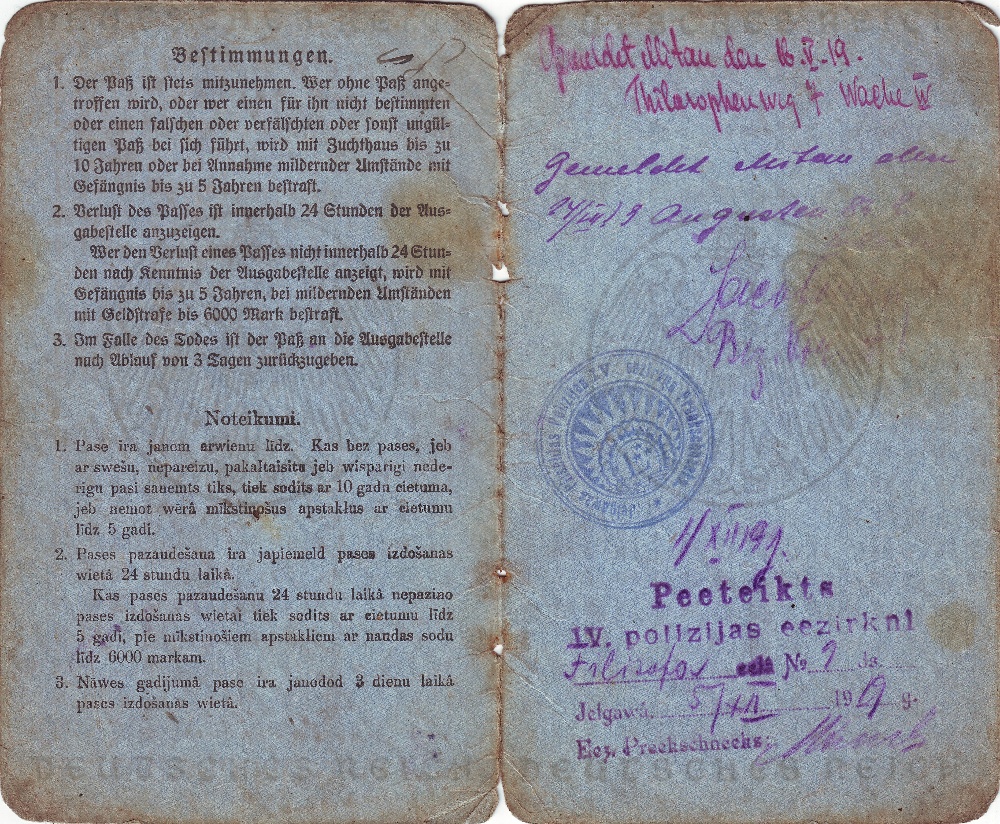 Bestimmungen.
1. Der Paß ist stets mitzunehmen. Wer ohne Paß ange-
troffen wird, oder wer einen für ihn nicht bestimmten
oder einen falschen oder verfälschten oder sonst ungül-
tigen Paß bei sich führt, wird mit Zuchthaus bis zu
10 Jahren oder bei Annahme mildernder Umstände mit
Gefängnis bis zu 5 Jahren bestraft.
2. Verlust des Passes ist innerhalb 24 Stunden der Aus-
gabestelle anzuzeigen.
Wer den Verlust eines Passes nicht innerhalb 24 Stun-
den nach Kenntnis der Ausgabestelle anzeigt, wird mit
Gefängnis bis zu 5 Jahren, bei mildernden Umständen
mit Geldstrafe bis 6000 Mark bestraft.
3. Im Falle des Todes ist der Paß an die Ausgabestelle
nach Ablauf von 3 Tagen zurückzugeben.
Noteikumi.
1. Pase ira jaņem arwienu līdz. Kas bez pases, jeb
ar swešu, nepareizu, pakaltaisitu jeb wisparigi nede-
rigu pasi saņemts tiks, tiek sodits ar 10 gadu cietuma,
jeb ņemot wērā mīkstinošus apstakļus ar cietumu
līdz 5 gadi.
2. Pases pazaudešana ira japiemeld pases izdošanas
wietā 24 stundu laikā.
Kas pases pazaudešanu 24 stundu laikā nepaziņo
pases izdošanas wietai tiek sodits ar cietumu līdz
5 gadi, pie mīkstinošiem apstakļiem ar naudas sodu
līdz 6000 markam.
3. Nāwes gadijumā pase ira janodod 3 dienu laikā
pases izdošanas wietā.
Deutsches Reich
Gemeldet Mitau den 16.V.19.
Philosophenweg 7 Wache IV
Gemeldet Mitau den
Peeteikts
IV. polizijas eezirkni
Filosofos ceļā № 7 Ja.
Jelgawā. 5/XII 1919 g.
Eez. Preekschneeks:
Deutsches Reich